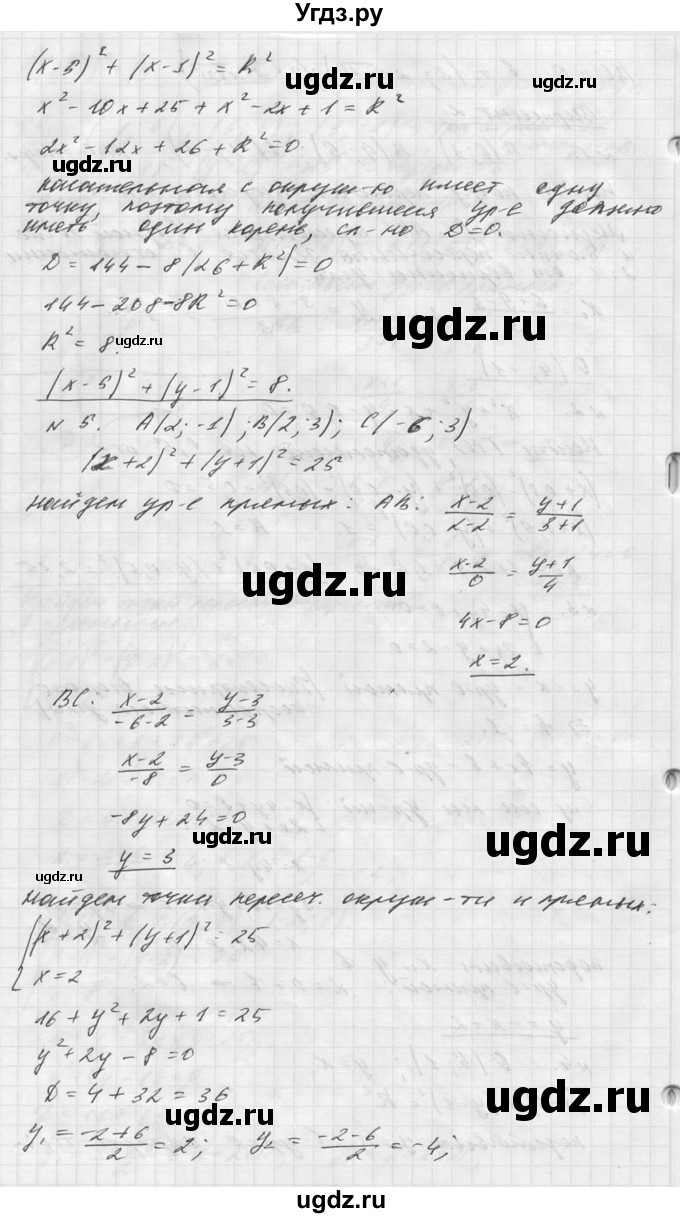 Угдз.ру
(x-5)² + (x-1)² = R²
x² - 10x + 25 + x² - 2x + 1 = R²
2x² - 12x + 26 + R² = 0
касательная с окруж-ю имеет одну
точку, поэтому получившееся ур-е должно
иметь один корень, сл-но D=0.
D = 144 - 8(26 + R²) = 0
144 - 208 - 8R² = 0
R² = 8.
(x-5)² + (y-1)² = 8.
N 5. A(2; -1); B(2; 3); C(-6; 3)
(x+2)² + (y+1)² = 25
Найдем ур-е прямых: AB: (x-2)/(2-2) = (y+1)/(3+1)
(x-2)/0 = (y+1)/4
4x-8=0
x=2.
BC: (x-2)/(-6-2) = (y-3)/(3-3)
(x-2)/-8 = (y-3)/0
-8y + 24 = 0
y = 3
Найдем точки пересеч. окруж-ти и прямых:
{(x+2)² + (y+1)² = 25
x=2
16 + y² + 2y + 1 = 25
y² + 2y - 8 = 0
D = 4 + 32 = 36
y₁ = (-2+6)/2 = 2; y₂ = (-2-6)/2 = -4;
ugdz.ru
ugdz.ru
ugdz.ru
ugdz.ru
ugdz.ru
ugdz.ru
ugdz.ru
ugdz.ru
ugdz.ru
ugdz.ru
ugdz.ru
ugdz.ru